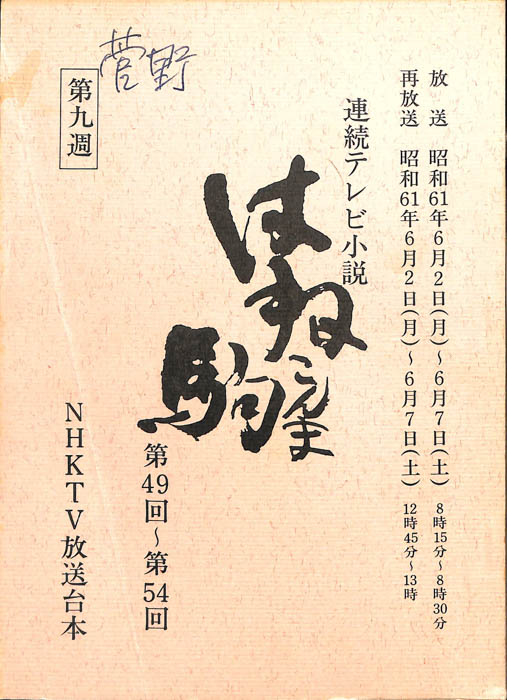 放送 昭和61年6月2日(月)～6月7日(土) 8時15分～8時30分
再放送 昭和61年6月2日(月)～6月7日(土) 12時45分～13時
連続テレビ小説
はね駒
こんま
第49回～第54回
菅野
第九週
NHKTV放送台本